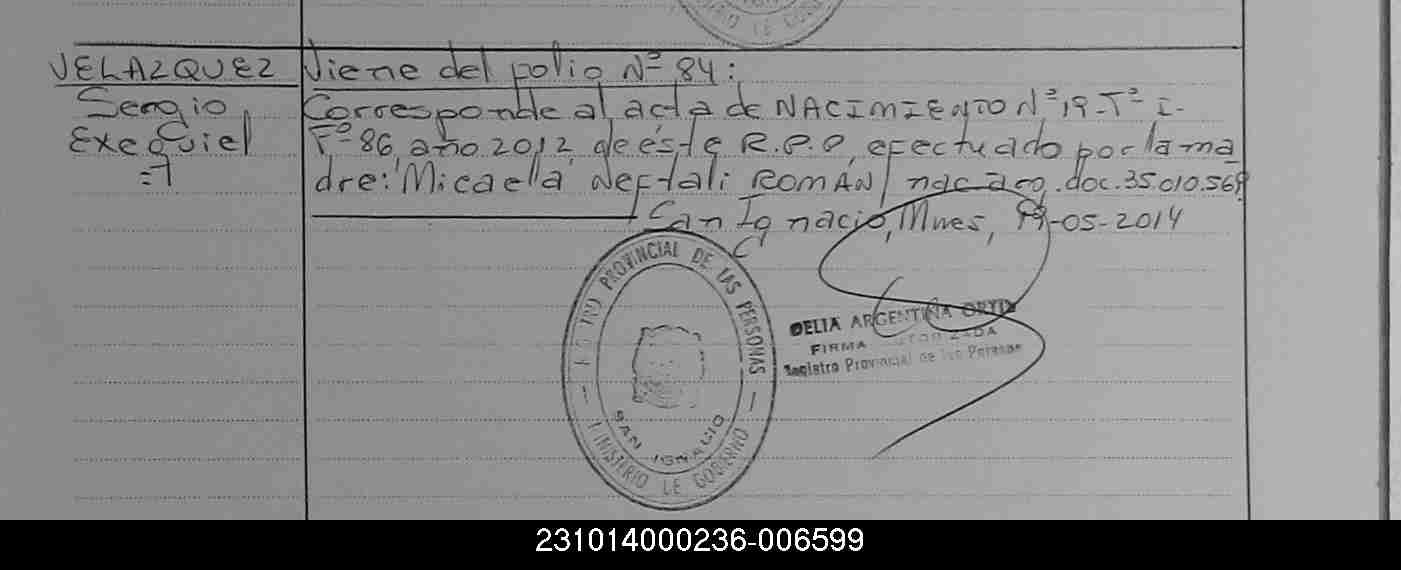 LE GOB
VELAZQUEZ
Sergio
Exequiel
=7
Viene del folio Nº 84:
Corresponde al acta de NACIMIENTO Nº 19-Tº I-
Fº 86, año 2012, de éste R.P.P, efectuado por la ma
dre: Micaela Neftali ROMAN, nac arg. doc. 35.010.569
San Ignacio, Mnes, -05-2014
PROVINCIAL DE LAS PERSONAS
SAN IGNACIO
MINISTERIO DE GOBIERNO
DELIA ARGENTINA ORTIZ
FIRMA
Registro Provincial de las Personas
231014000236-006599